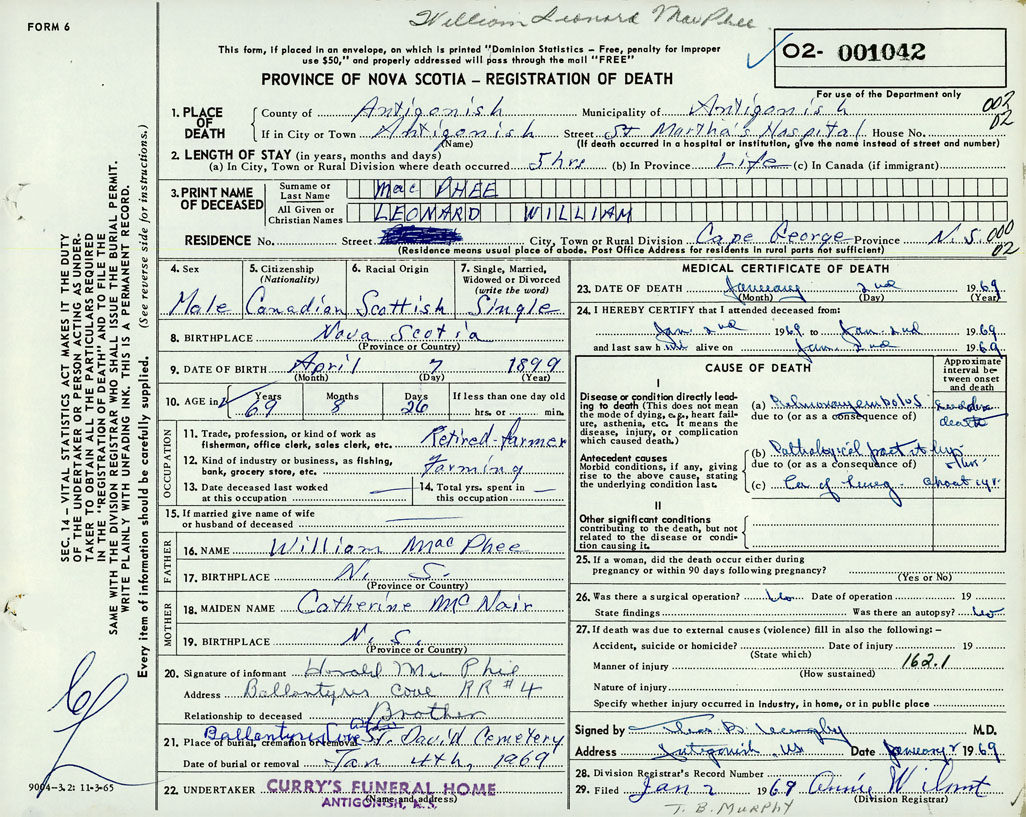 FORM 6
William Leonard MacPhee
This form, if placed in an envelope, on which is printed "Dominion Statistics – Free, penalty for improper
use $50," and properly addressed will pass through the mail "FREE"
O2- 001042
PROVINCE OF NOVA SCOTIA – REGISTRATION OF DEATH
For use of the Department only
002
02
1. PLACE OF DEATH
County of Antigonish Municipality of Antigonish
If in City or Town Antigonish Street St Martha's Hospital House No.
(Name) (If death occurred in a hospital or institution, give the name instead of street and number)
2. LENGTH OF STAY (in years, months and days)
(a) In City, Town or Rural Division where death occurred 5 hrs (b) In Province Life (c) In Canada (if immigrant)
3. PRINT NAME OF DECEASED
Surname or Last Name Mac PHEE
All Given or Christian Names LEONARD WILLIAM
RESIDENCE No. Street City, Town or Rural Division Cape George Province N.S. 000
02
(Residence means usual place of abode. Post Office Address for residents in rural parts not sufficient)
4. Sex Male
5. Citizenship (Nationality) Canadian
6. Racial Origin Scottish
7. Single, Married, Widowed or Divorced (write the word) Single
8. BIRTHPLACE Nova Scotia
(Province or Country)
9. DATE OF BIRTH April 7 1899
(Month) (Day) (Year)
10. AGE in Years 69 Months 8 Days 26 If less than one day old
hrs. or min.
OCCUPATION
11. Trade, profession, or kind of work as
fisherman, office clerk, sales clerk, etc. Retired-farmer
12. Kind of industry or business, as fishing,
bank, grocery store, etc. Farming
13. Date deceased last worked
at this occupation
14. Total yrs. spent in
this occupation
15. If married give name of wife
or husband of deceased
FATHER
16. NAME William MacPhee
17. BIRTHPLACE N. S.
(Province or Country)
MOTHER
18. MAIDEN NAME Catherine McNair
19. BIRTHPLACE N. S.
(Province or Country)
20. Signature of informant
Address Cove RR #4
Relationship to deceased Brother
21. Place of burial, cremation or removal St. David Cemetery
Date of burial or removal Jan 4th, 1969
22. UNDERTAKER CURRY'S FUNERAL HOME
ANTIGONISH, N.S.
(Name and address)
MEDICAL CERTIFICATE OF DEATH
23. DATE OF DEATH January 2nd 1969
(Month) (Day) (Year)
24. I HEREBY CERTIFY that I attended deceased from:
Jan. 2nd 1969 to Jan. 2nd 1969
and last saw him alive on Jan. 2nd 1969
CAUSE OF DEATH
Approximate interval between onset and death
I
Disease or condition directly leading to death (This does not mean the mode of dying, e.g., heart failure, asthenia, etc. It means the disease, injury, or complication which caused death.)
(a) Pulmonary embolus
due to (or as a consequence of)
death
Antecedent causes
Morbid conditions, if any, giving rise to the above cause, stating the underlying condition last.
(b) Pathological fract. hip
due to (or as a consequence of)
(c) Ca of lung about 1 yr.
II
Other significant conditions
contributing to the death, but not related to the disease or condition causing it.
25. If a woman, did the death occur either during
pregnancy or within 90 days following pregnancy?
(Yes or No)
26. Was there a surgical operation? No Date of operation 19
State findings Was there an autopsy? No
27. If death was due to external causes (violence) fill in also the following: –
Accident, suicide or homicide? Date of injury 19
(State which)
162.1
Manner of injury
(How sustained)
Nature of injury
Specify whether injury occurred in Industry, in home, or in public place
Signed by M.D.
Address Antigonish, NS Date January 2 1969
28. Division Registrar's Record Number
29. Filed Jan 2 1969
(Division Registrar)
T. B. MURPHY
SEC. 14 – VITAL STATISTICS ACT MAKES IT THE DUTY
OF THE UNDERTAKER OR PERSON ACTING AS UNDER-
TAKER TO OBTAIN ALL THE PARTICULARS REQUIRED
IN THE "REGISTRATION OF DEATH" AND TO FILE THE
SAME WITH THE DIVISION REGISTRAR WHO SHALL ISSUE THE BURIAL PERMIT.
WRITE PLAINLY WITH UNFADING INK. THIS IS A PERMANENT RECORD.
Every item of information should be carefully supplied. (See reverse side for instructions.)
9004-3.2: 11-3-65